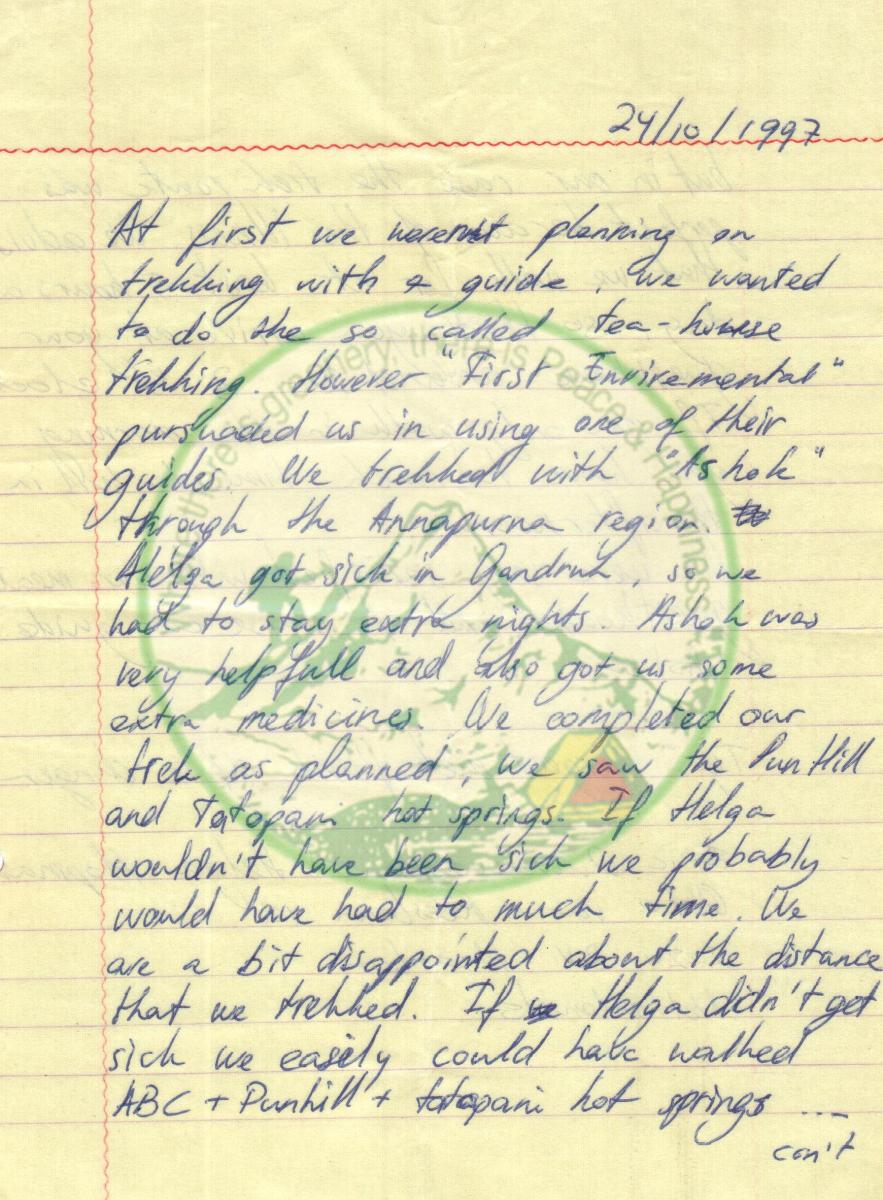 24/10/1997
At first we weren't planning on
trekking with a guide, we wanted
to do the so called tea-house
trekking. However "First Enviremental"
pursuaded us in using one of their
guides. We trekked with "Ashok"
through the Annapurna region.
Helga got sick in Gandruk, so we
had to stay extra nights. Ashok was
very helpfull and also got us some
extra medicines. We completed our
trek as planned, we saw the Pun Hill
and Tatopani hot springs. If Helga
wouldn't have been sick we probably
would have had to much time. We
are a bit disappointed about the distance
that we trekked. If Helga didn't get
sick we easily could have walked
ABC + Punhill + tatopani hot springs ...
con't
there is greenery, there is Peace & Happiness